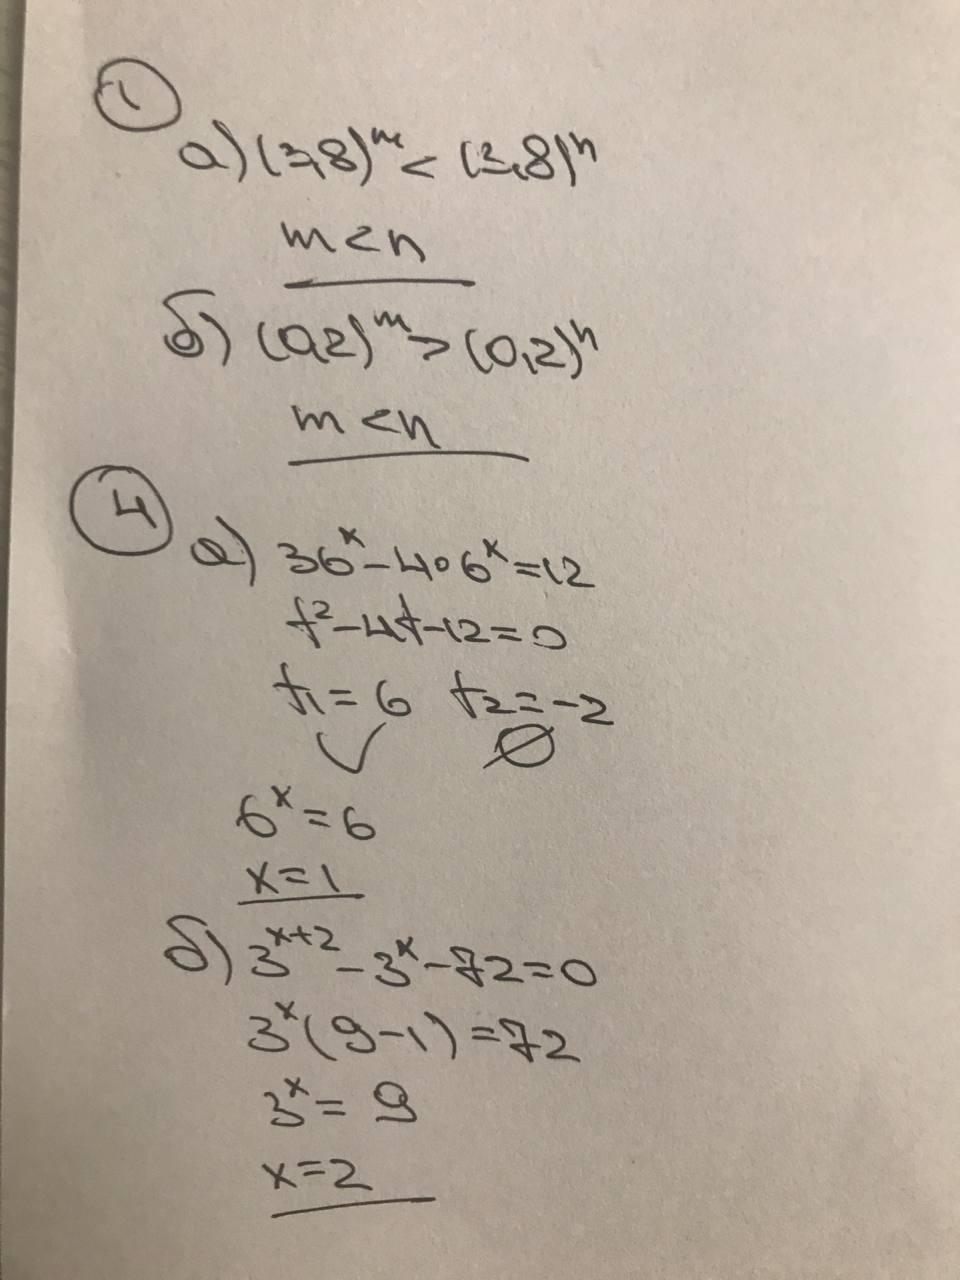 1
а) (3,8)^m < (3,8)^n
m < n
б) (0,2)^m > (0,2)^n
m < n
4
а) 36^x - 4∘6^x = 12
t^2 - 4t - 12 = 0
t1 = 6 t2 = -2
✓ ∅
6^x = 6
x = 1
б) 3^{x+2} - 3^x - 72 = 0
3^x (9 - 1) = 72
3^x = 9
x = 2